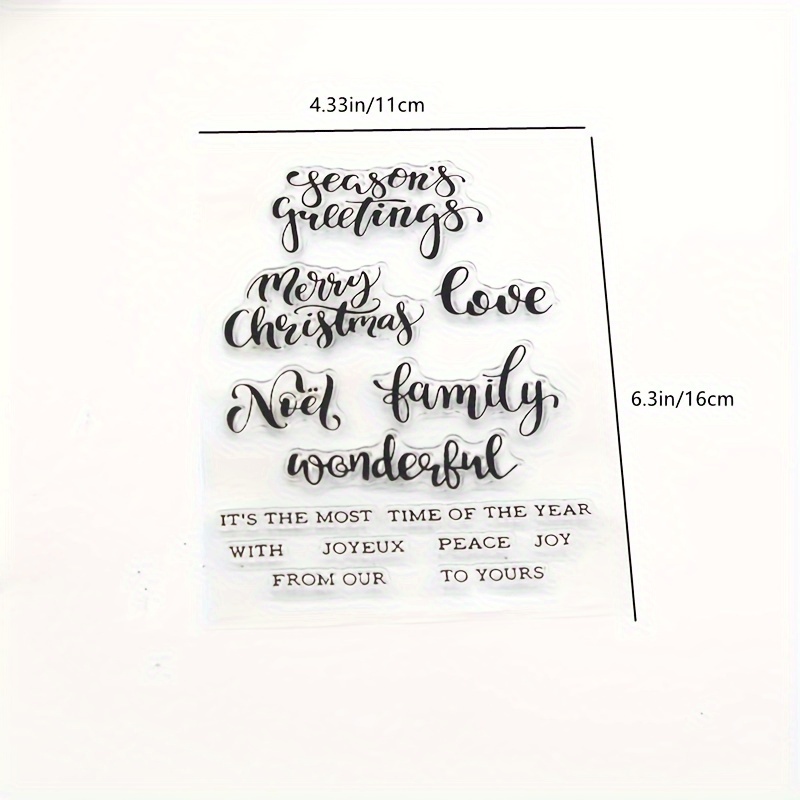 4.33in/11cm
season's
greetings
Merry
Christmas
love
Noël
family
6.3in/16cm
wonderful
IT'S THE MOST TIME OF THE YEAR
WITH JOYEUX PEACE JOY
FROM OUR TO YOURS